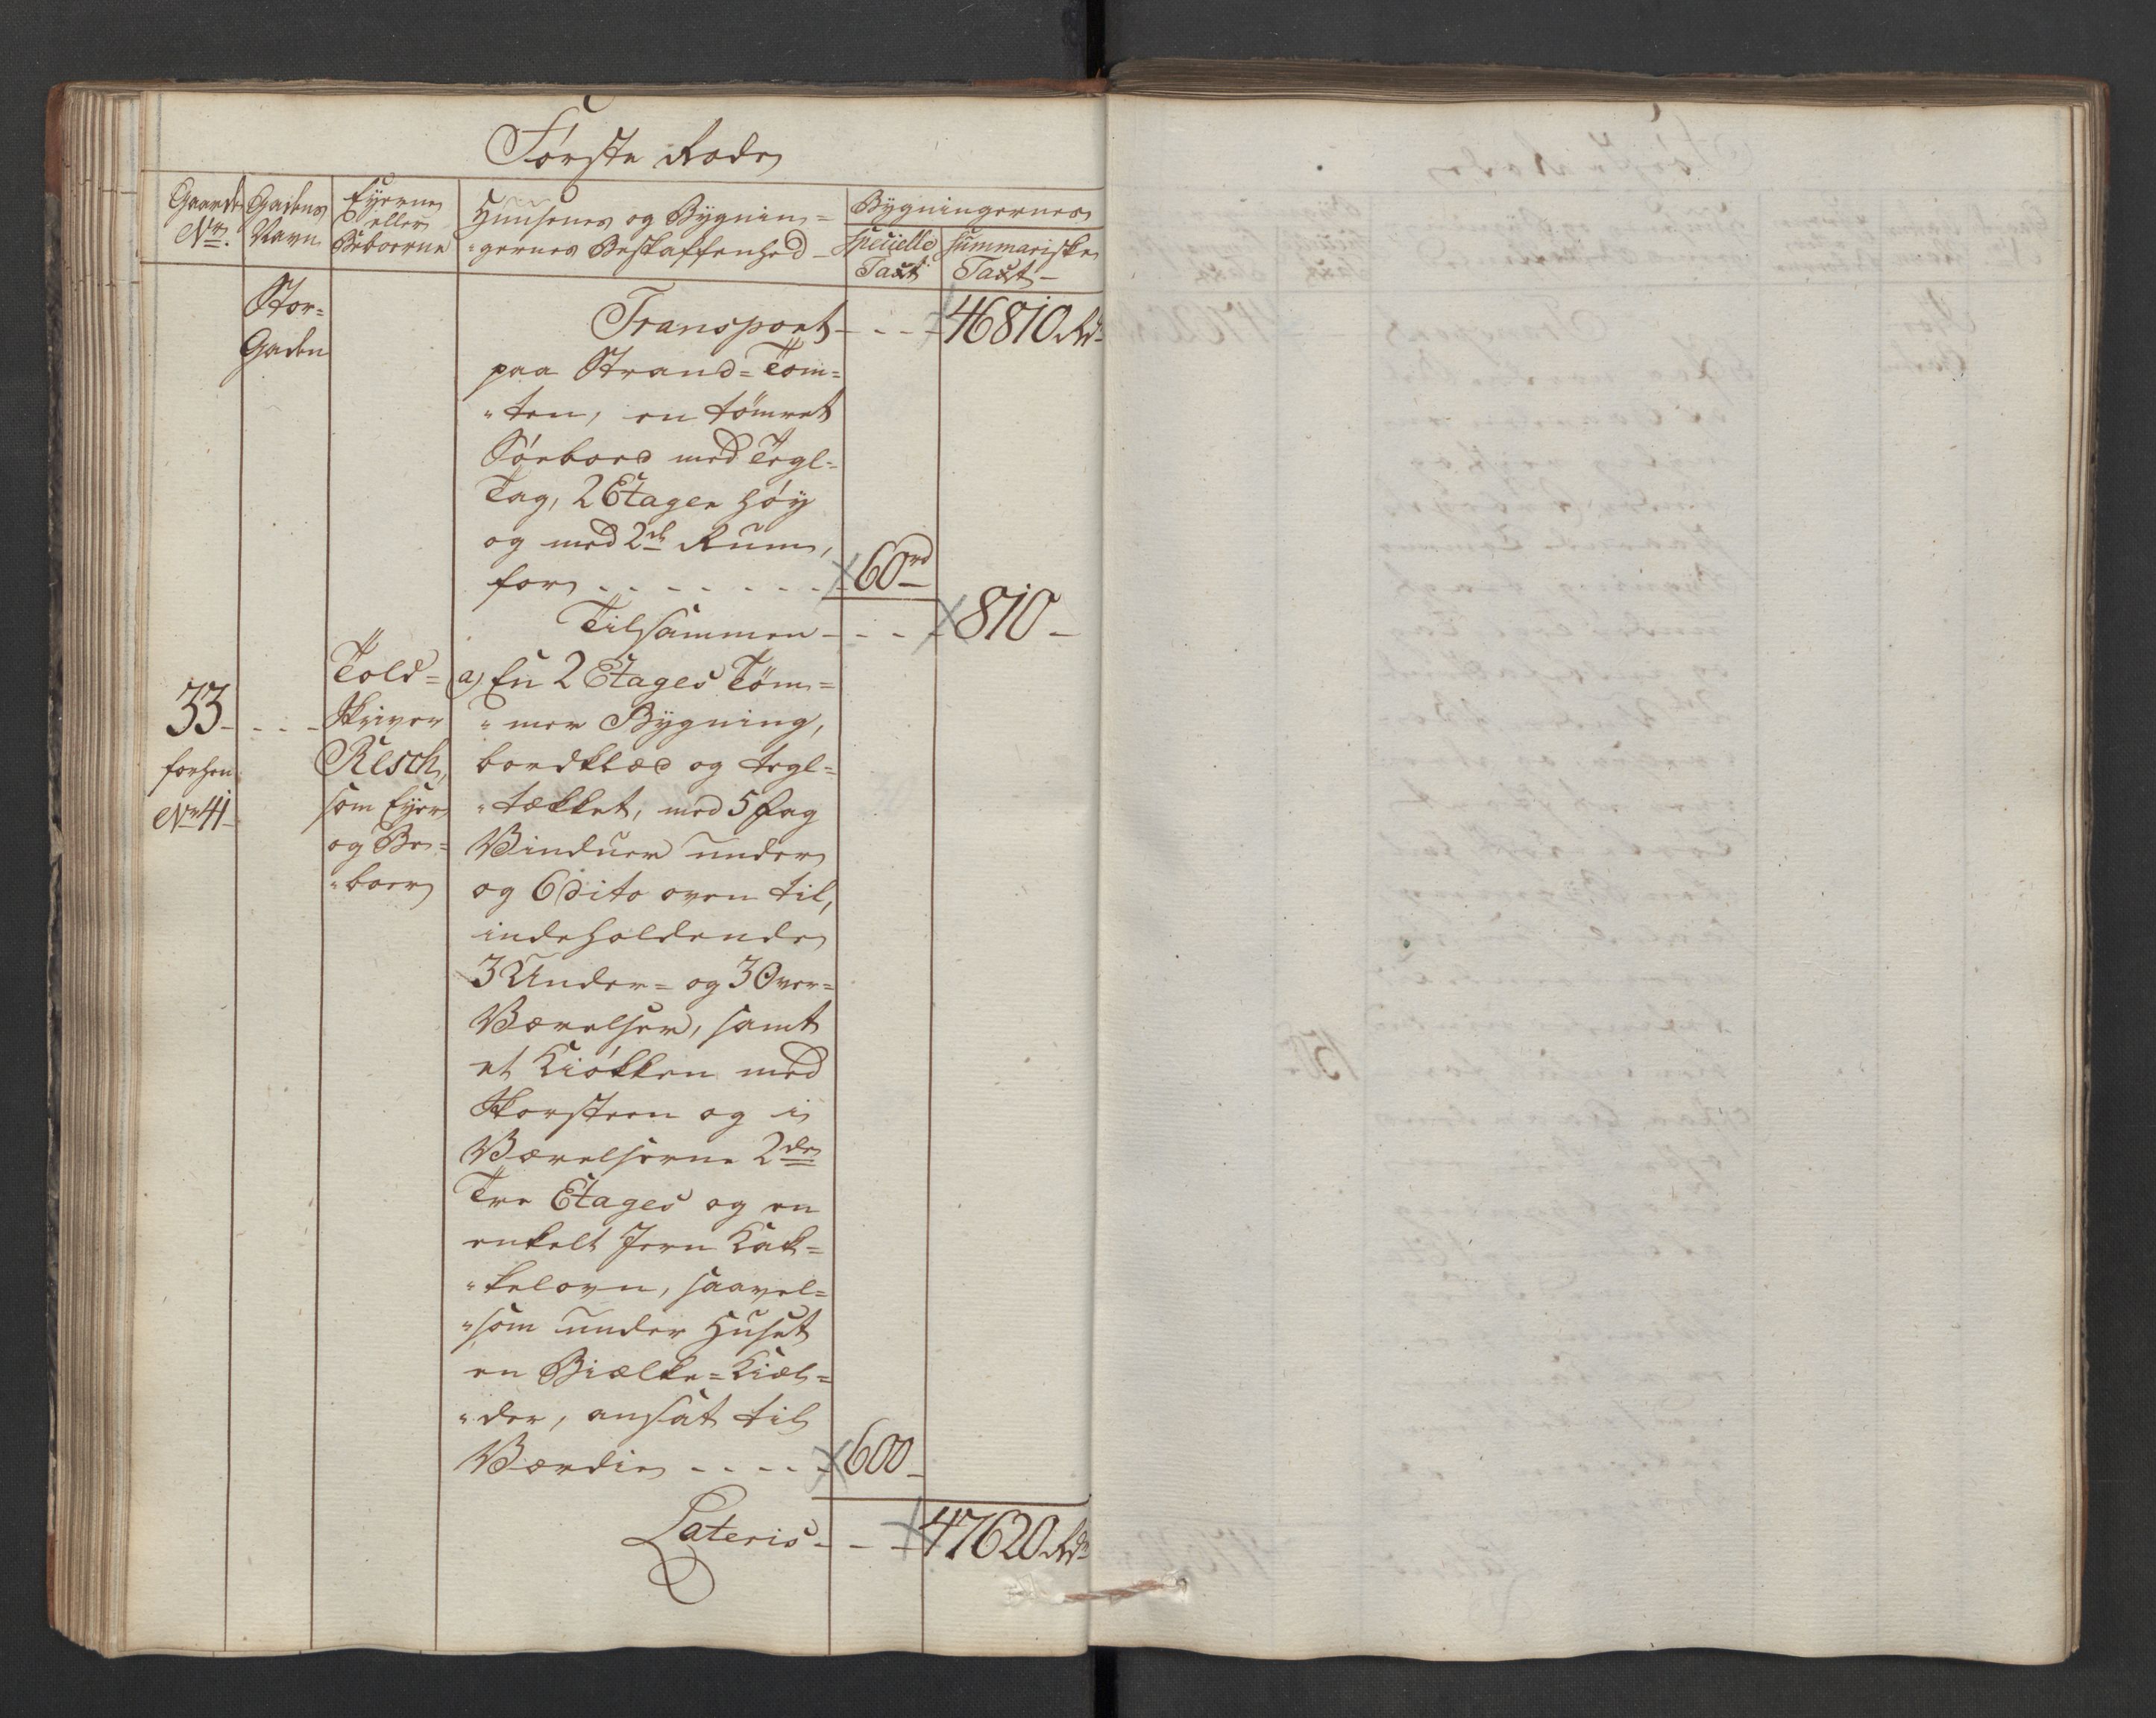 Første Rode
Gaardens No.
Gadens Navn
Eyerne eller Beboerne
Huusenes og Bygnin=
"gernes Beskaffenhed
Bygningernes
specielle Taxt
summariske Taxt
Stor=
Gaden
Transport - - - 46810 Rd
paa Strand=Tom=
"ten, en tömret
Söeboed med Tegl=
Tag, 2 Etager høy
og med 2de Rum,
for - - - - - - - 60 rd
Tilsammen - - - 810 -
33 - - - -
forhen
No 41
Told=
skriver
Resch,
som Eyer
og Be=
"boer
a) En 2 Etages Töm=
"mer Bygning,
bordklæd og tegl=
"tækket, med 5 Fag
Vinduer under
og 6 dito oven til,
indeholdende
3 Under= og 3 Over=
Værelser, samt
et Kiökken med
Skorsteen og i
Værelserne 2de
Tre Etages og en
enkelt Jern Kak=
"kelovn, saavel=
"som under Huset
en Bielke=Kiel=
"der, ansat til
Værdie - - - - 600 -
Lateris - - - 47620 Rd